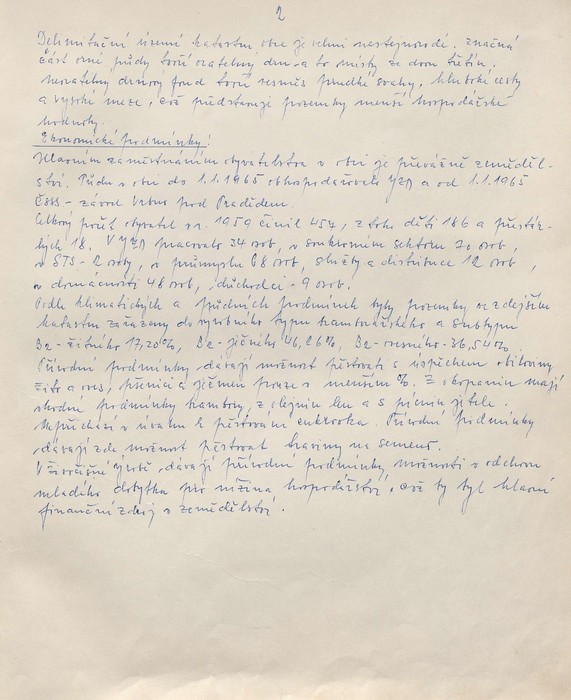 2
Delimitační území katastru obce je velmi nestejnorodé. Značná
část orné půdy tvoří oratelný drn a to místy ze dvou třetin.
Neoratelný drnový fond tvoří vesměs prudké svahy, hluboké cesty
a vysoké meze, což představuje pozemky menší hospodářské
hodnoty.
Ekonomické podmínky:
Hlavním zaměstnáním obyvatelstva v obci je převážně zeměděl-
ství. Půdu v obci do 1.1.1965 obhospodařovalo JZD a od 1.1.1965
ČSSS - závod Vrbno pod Pradědem.
Celkový počet obyvatel v r. 1959 činil 454, z toho dětí 186 a přestár-
lých 18. V JZD pracovalo 34 osob, v soukromém sektoru 20 osob,
v STS - 2 osoby, v průmyslu 68 osob, služby a distribuce 12 osob,
v domácnosti 48 osob, důchodci - 9 osob.
Podle klimatických a půdních podmínek byly pozemky ve zdejším
katastru zařazeny do výrobního typu bramborářského a subtypu
B2 - žitného 17,20%, B2 - ječného 46,26%, B2 - ovesného - 36,54%.
Přírodní podmínky dávají možnost pěstovati s úspěchem obiloviny
žito a oves, pšenici a ječmen pouze v menším %. Z okopanin mají
vhodné podmínky brambory, z olejnin len a s pícnin jetele.
Nepřichází v úvahu k pěstování cukrovka. Přírodní podmínky
dávají zde možnost pěstovat traviny na semeno.
V živočišné výrobě dávají přírodní podmínky možnosti v odchovu
mladého dobytka pro nížinná hospodářství, což by byl hlavní
finanční zdroj v zemědělství.